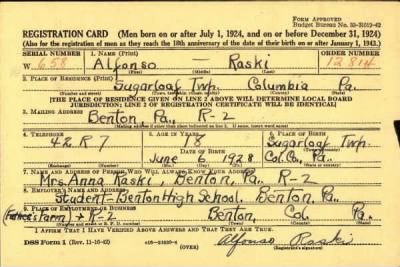 FORM APPROVED
Budget Bureau No. 33-R012-42
REGISTRATION CARD (Men born on or after July 1, 1924, and on or before December 31, 1924)
(Also for the registration of men as they reach the 18th anniversary of the date of their birth on or after January 1, 1943.)
SERIAL NUMBER 1. NAME (Print) ORDER NUMBER
W 658 Alfonso — Raski 12814
(First) (Middle) (Last)
2. PLACE OF RESIDENCE (Print)
Sugarloaf Twp. Columbia Pa.
(Number and street) (Town, township, village, or city) (County) (State)
[THE PLACE OF RESIDENCE GIVEN ON LINE 2 ABOVE WILL DETERMINE LOCAL BOARD
JURISDICTION; LINE 2 OF REGISTRATION CERTIFICATE WILL BE IDENTICAL]
3. MAILING ADDRESS
Benton, Pa., R-2
[Mailing address if other than place indicated on line 2. If same, insert word same]
4. TELEPHONE 5. AGE IN YEARS 6. PLACE OF BIRTH
42 R 7 18 Sugarloaf Twp.
DATE OF BIRTH
June 6 1928 Col. Co., Pa.
(Mo.) (Day) (Yr.)
7. NAME AND ADDRESS OF PERSON WHO WILL ALWAYS KNOW YOUR ADDRESS
Mrs. Anna Raski, Benton, Pa., R-2
8. EMPLOYER'S NAME AND ADDRESS
Student-Benton High School, Benton, Pa.
9. PLACE OF EMPLOYMENT OR BUSINESS
(Father's Farm) + R-2 Benton, Col. Pa.
(Number and street or R. F. D. number) (Town) (County) (State)
I AFFIRM THAT I HAVE VERIFIED ABOVE ANSWERS AND THAT THEY ARE TRUE.
DSS Form 1 (Rev. 11-16-42) Alfonso Raski